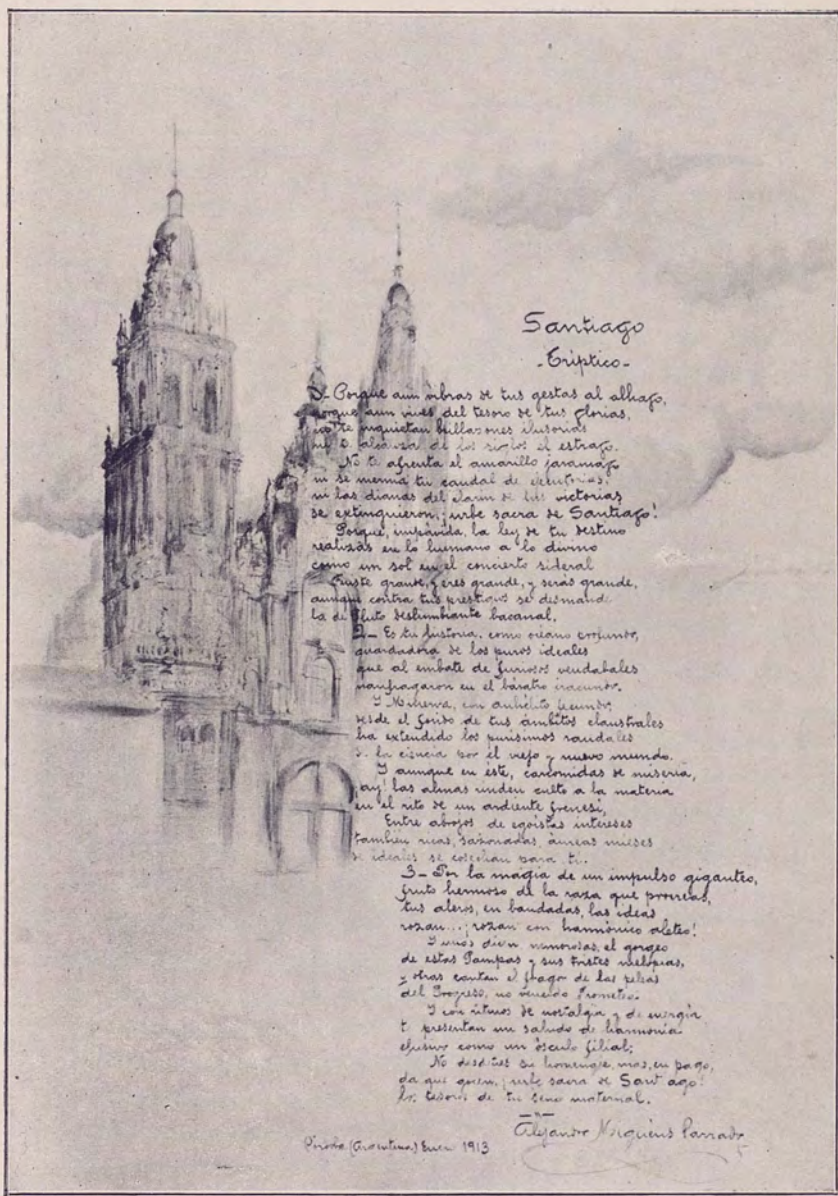 Santiago
-Tríptico-
Porque aún vibras de tus gestas al alhago,
porque aun vives del tesoro de tus glorias,
no te inquietan brillazones ilusorias
ni te alcanza de los siglos el estrago.
No te afrenta el amarillo jaramago
ni se merma tu caudal de ejecutorias,
ni las dianas del clarín de tus victorias
se extinguieron, ¡urbe sacra de Santiago!
Porque, impávida, la ley de tu destino
realizas en lo humano a lo divino
como un sol en el concierto sideral
Fuiste grande, y eres grande, y serás grande,
aunque contra tus prestigios se desmande
la de Pluto deslumbrante bacanal.
2- Es tu historia, como océano profundo,
guardadora de los puros ideales
que al embate de furiosos vendabales
naufragaron en el báratro iracundo.
Y Minerva, con anhélito fecundo,
desde el fondo de tus ámbitos claustrales
ha extendido los purísimos raudales
de la ciencia por el viejo y nuevo mundo.
Y aunque en este, carcomidas de miseria,
¡ay! las almas rinden culto a la materia
en el rito de un ardiente frenesí,
Entre abrojos de egoistas intereses
también ricas, sazonadas, áureas mieses
de ideales se cosechan para ti.
3- Por la magia de un impulso giganteo,
fruto hermoso de la raza que procreas,
tus aleros, en bandadas, las ideas
rozan... ¡rozan con harmónico aleteo!
Y unas dicen rumorosas, el gorgeo
de estas Pampas y sus tristes melopias,
y otras cantan el fragor de las peleas
del Progreso, no vencido Prometeo.
Y con ritmos de nostalgia y de energía
te presentan un saludo de harmonía
efusivo como un ósculo filial;
No desdeñes su homenaje, mas, en pago,
da que gocen, ¡urbe sacra de Santiago!
los tesoros de tu seno maternal.
Alejandro Nogueiras Parrado
Córdoba (Argentina) Enero 1913